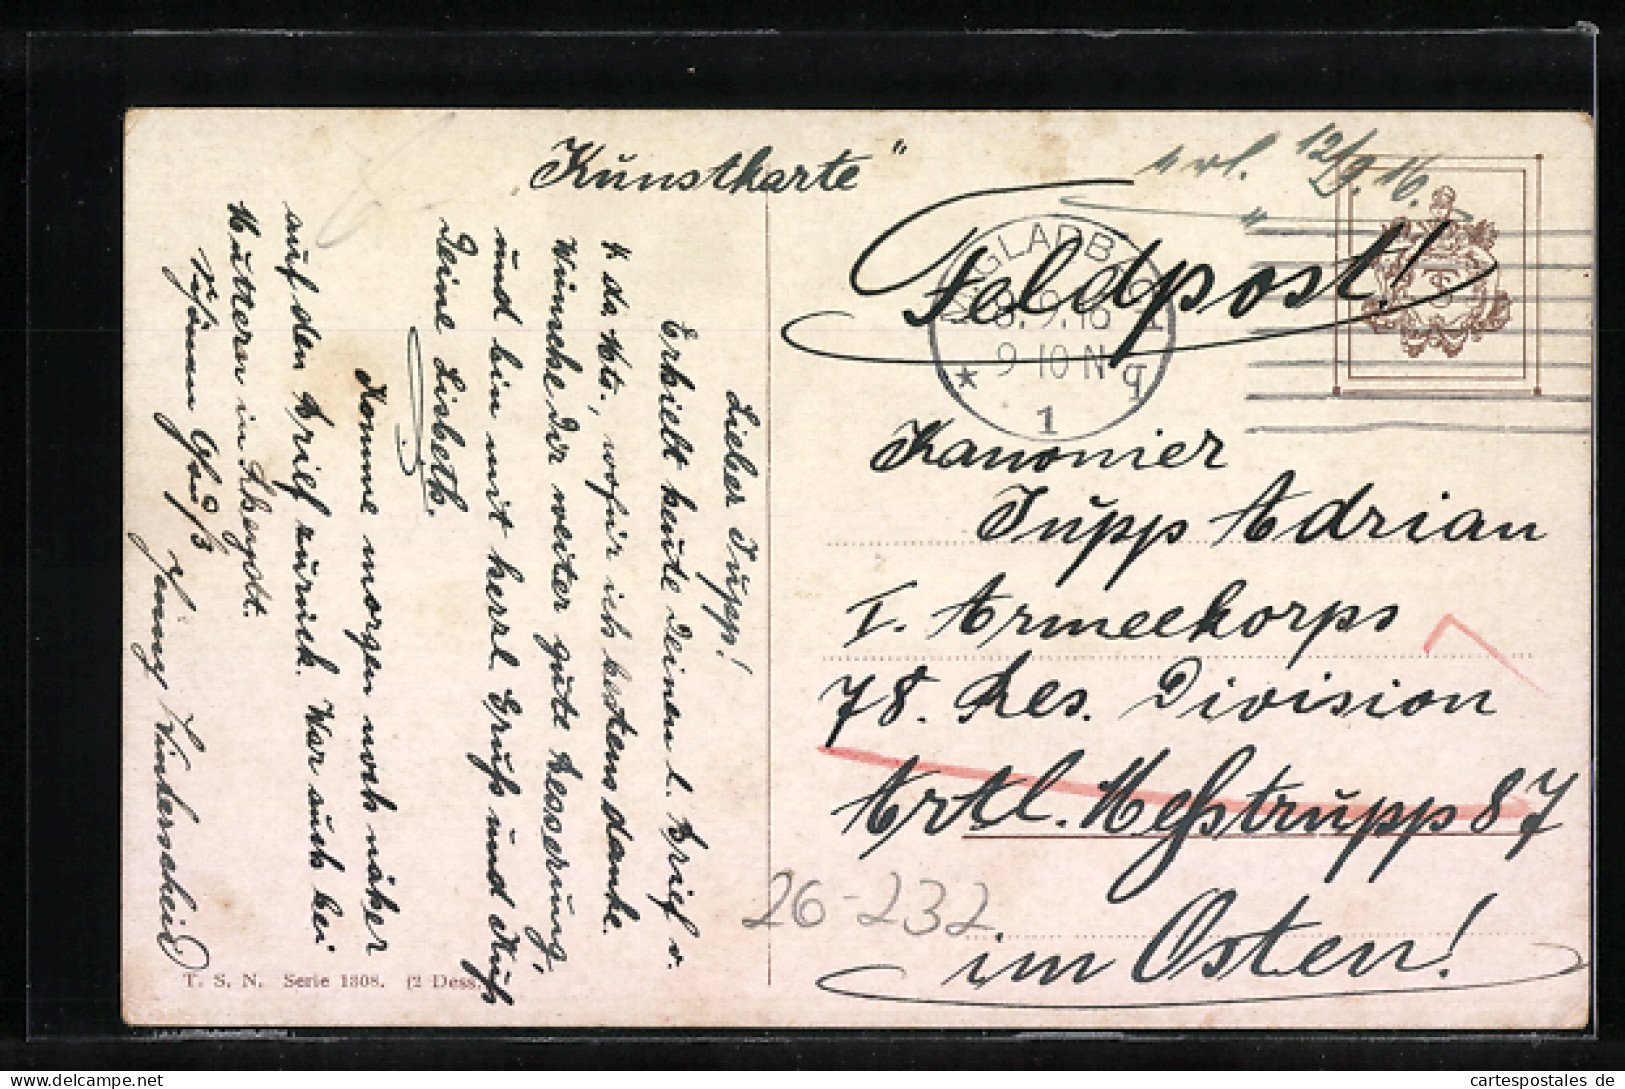 „Kunstkarte"
erl. 12/9. 16.
Feldpost!
M. GLADBACH
8. 9. 16
9-10 N
1
TSN
Kanonier
Jupp Adrian
I. Armeekorps
78. Res. Division
Artl. Meßtrupp 87
im Osten!
26-232
Lieber Jupp!
Erhielt heute Deinen l. Brief v.
wofür ich bestens danke.
Wünsche Dir weiter gute Besserung,
und bin mit herzl. Gruß und Kuß
Deine Lisbeth.
Komme morgen noch näher
auf den Brief zurück. War auch bei
Muttern in Rheydt.
Jenny Winderscheid
T. S. N. Serie 1308. (2 Dess.)
cartespostales de